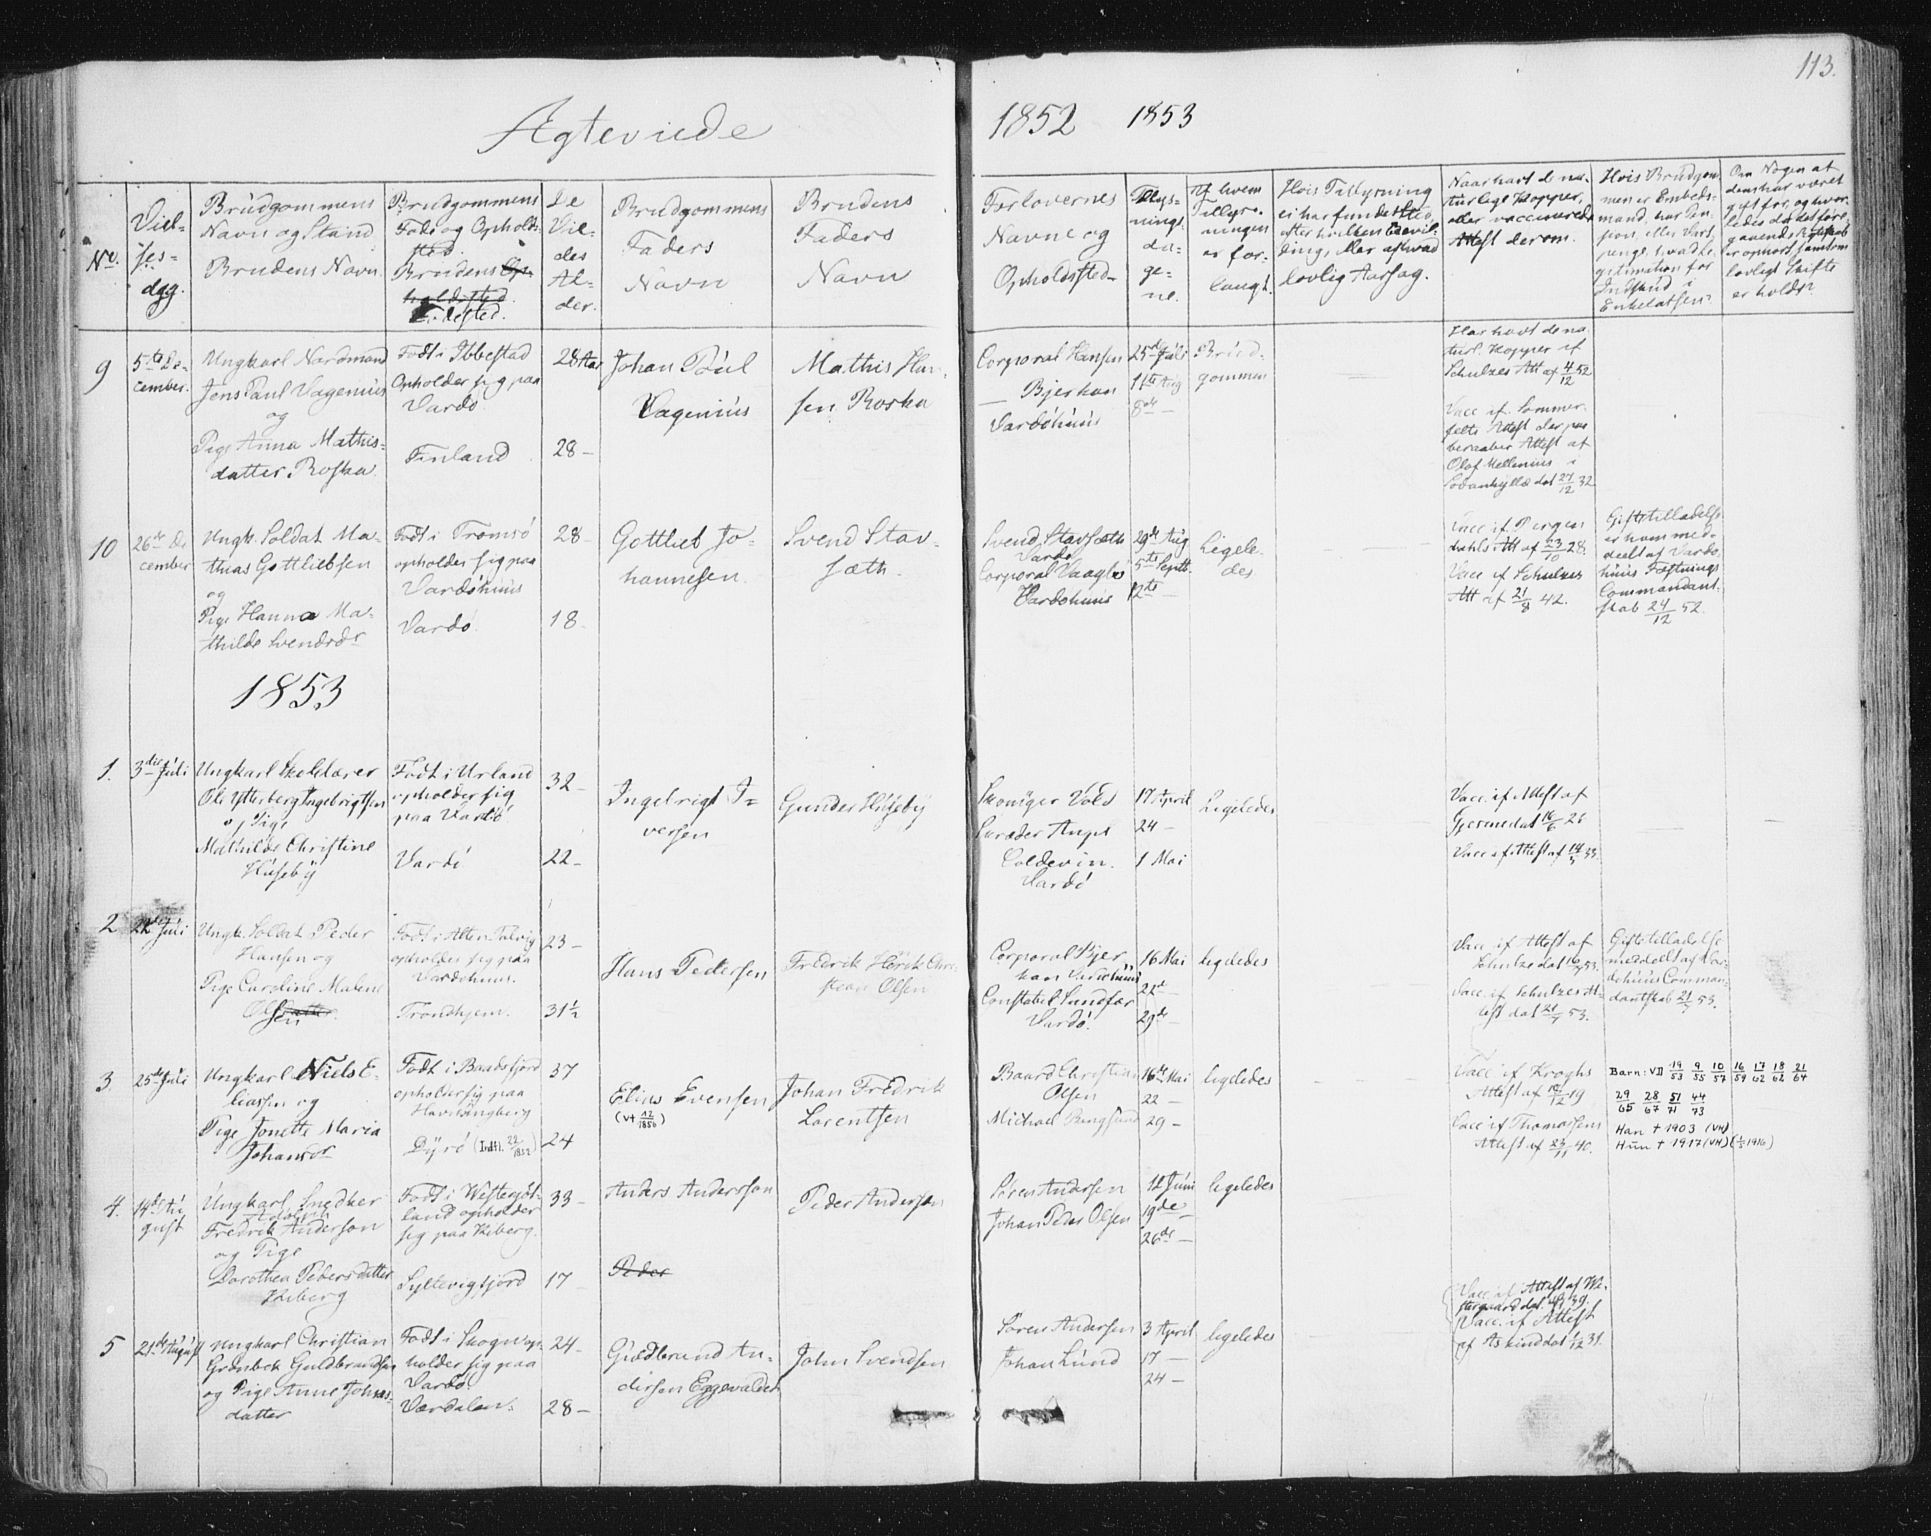 113.
Ægteviede
1852 1853
No.
Viel-
ses-
dag.
Brudgommens
Navn og Stand
Brudens Navn.
Brudgommens
Føde og Opholds-
sted.
Brudens Op-
holdssted.
Fødested.
De
Vie-
des
Al-
der.
Brudgommens
Faders
Navn
Brudens
Faders
Navn
Forlovernes
Navne og
Opholdssted
Tillys-
nings-
da-
ge-
ne.
Af hvem
Tillys-
ningen
er for-
langt.
Hvis Tillysning
ei har fundet Sted,
efter hvilken Bevil-
ding, eller af hvad
lovlig Aarsag.
Naar havt de na-
turlige Kopper,
eller vaccinerede
Attest derom.
Hvis Brudgom-
men er Embeds-
mand, har Pen-
sion, eller Vart-
penge, hvad Le-
gitimation for
Indskud i
Enkekassen.
Om Nogen af
dem har været
gift før, og hvor-
ledes da det fore-
gaaende Ægteskab
er ophørt samt om
lovligt Skifte
er holdt?
9
5te De-
cember.
Ungkarl Nordmand
Jens Paul Vagenius
og
Pige Anna Mathis-
datter Roska
Født i Ibbestad
Opholder sig paa
Vardø
Finland
28 Aar
28 –
Johan Poul
Vagenius
Mathis Han-
sen Roska
Corporal Hansen
— Bjerkan
Vardøhuus
25de Juli
1te Aug
8de –
Brud-
gommen
Har havt de na-
turl. Kopper if
Schulzes Att af 4/12 52
Vacc if. Sommer-
felts Attest der paa
beraaber Attest af
Olof Mellenius i
Sodankylle dat 27/12 32
10
26de De
cember
Ungk. Soldat Ma-
thias Gottliebsen
og
Pige Hanna Ma-
thilde Svendsdr
Født i Tromsø
opholder sig paa
Vardøhuus
Vardø.
28 –
18.
Gottlieb Jo-
hannesen.
Svend Stav-
sæth.
Svend Stavsæth
Vardø
Corporal Vaagbø
Vardøhuus
29de Aug
5te Septb.
12te –
Ligele-
des
Vacc if Bergen
dahls Att af 23/10 28.
Vacc if Schulzes
Att af 21/8 42.
Giftetilladelse
er ham med-
deelt af Vardø-
huus Fæstnings
Commandant-
skab 24/12 52.
1853
1.
3die Juli
Ungkarl Skolelærer
Ole Ytterberg Ingebrigtsen
og Pige
Mathilde Christine
Huseby
Født i Urland
opholder sig
paa Vardø
Vardø
32 –
22 –
Ingebrigt I-
versen
Gunder Huseby
17 April
24 –
1 Mai
Coldevin.
Vardø
Ligeledes
Vacc. if Attest af
Vacc if Attest af
2
Juli
Ungk. Soldat Peder
Hansen og
Pige Caroline Malene
Olsdatter
sen
Født i Alten Talvig
opholder sig paa
Vardøhuus.
Trondhjem.
23 –
31½
Hans Pedersen
Fredrik Chri-
stian Olsen
Corporal Bjer
kan Vardøhuus
Constabel Sundfær
Vardø.
16 Mai
22de –
29de –
ligeledes
Vacc if Attest af
Vacc. if Schulzes At-
test dat 21/7 53.
Giftetilladelse
meddelt af Var-
døhuus Comman-
dantskab 21/7 53.
3.
25de Juli
Ungkarl Niels E-
liassen og
Pige Jonette Maria
Johansdr
Født i Baadsfjord
opholder sig paa
Havningberg
Dyrø (Indfl. 22/1852)
37
24
Elias Evensen
(V† 12/1856)
Johan Fredrik
Lorentsen
Baard Christian
Olsen
Michael Ringsund
16de Mai
22 –
29 –
ligeledes
Vacc if Kroghs
Attest af 10/12 19
Vacc if Thomassens
Attest af 23/11 40.
Barn: VD 19/53 9/55 10/57 16/59 17/62 18/62 21/64
29/65 28/67 51/71 44/73
Han † 1903 (VH)
Hun † 1917 (VH) (1/5 1916)
4.
14de Au-
gust
Ungkarl Snedker
Adolph
Fredrik Anderson
og Pige
Dorothea Pedersdatter
Kiberg
Født i Westergöt-
land opholder
sig paa Kiberg.
Syltevigfjord
33 –
17 –
Anders Andersson
Peder
Peder Andersen
Søren Andersen
Johan Peder Olsen
12 Juni
19de –
26de –
ligeledes
5
21de August
Ungkarl Christian
Grønbek Guldbrandsen
og Pige Anne Johns-
datter
Født i Skogn op-
holder sig paa
Vardø.
Værdalen.
24 –
28 –
Guldbrand An-
dersen Eggevalden
John Svendsen
Søren Andersen
Johan Lund
3 April
17 –
24 –
ligeledes
Vacc. if Attest af
Vacc. if Attest